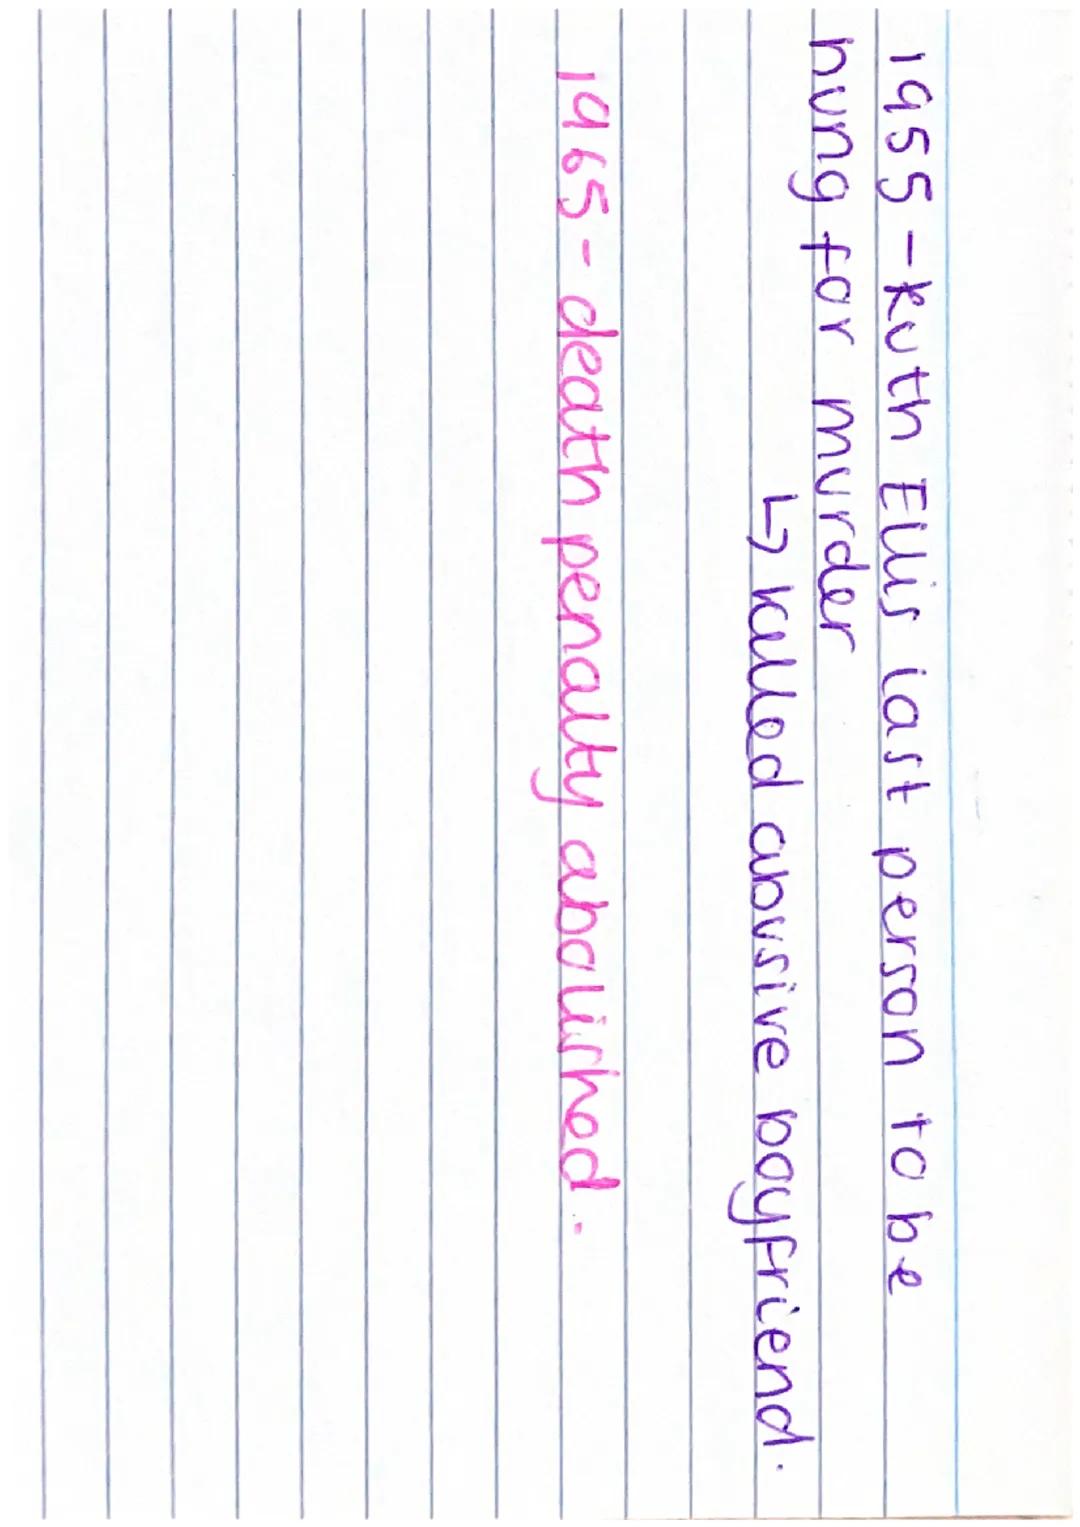 1955 - Ruth Ellis last person to be
hung for murder
↳ killed abusive boyfriend.
1965 - death penalty abolished.